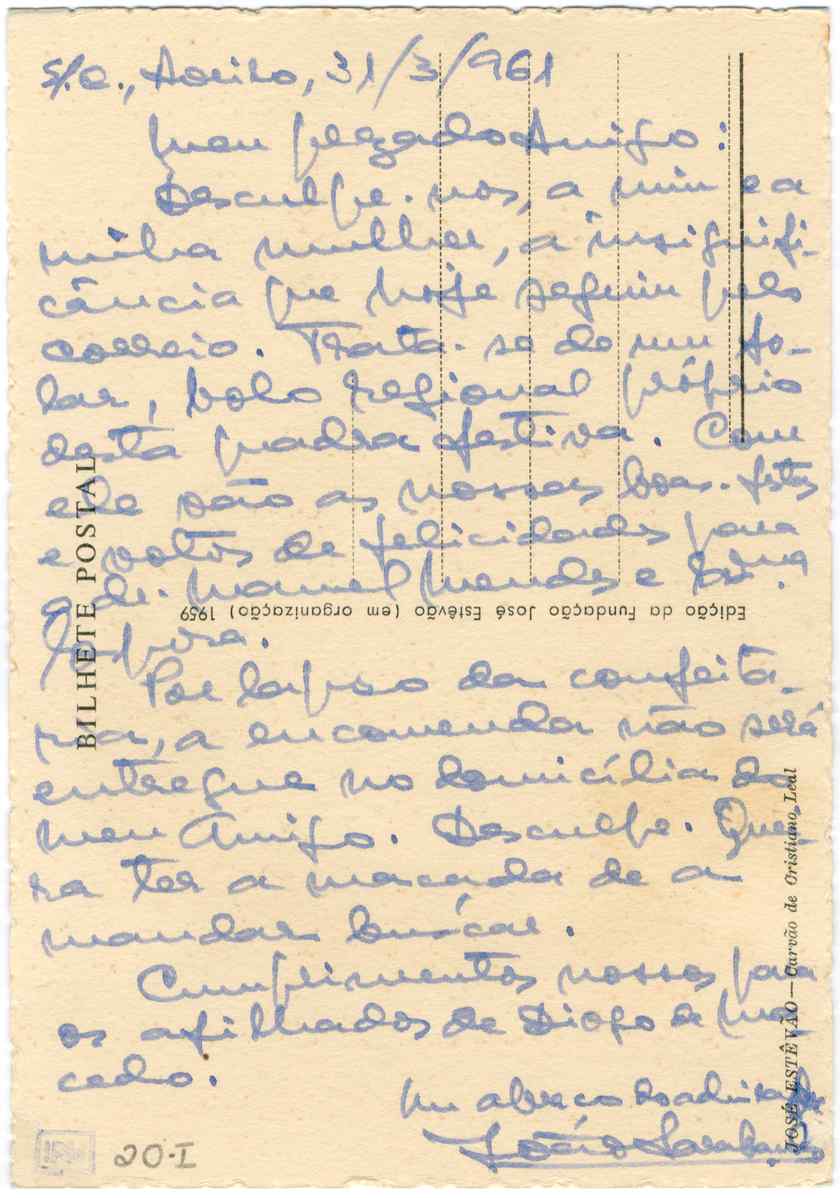 S/C., Aveiro, 31/3/961
Meu prezado Amigo:
Desculpe-nos, a mim e a
minha mulher, a insignifi-
cância que hoje seguiu pelo
correio. Trata-se de um fo-
lar, bolo regional próprio
desta quadra festiva. Com
ele são as nossas boas-festas
e votos de felicidades para
o dr. Manuel Mendes e Sua
Esposa.
Por lapso da confeita-
ria, a encomenda não será
entregue no domicílio do
meu Amigo. Desculpe. Quei-
ra ter a maçada de a
mandar buscar.
Cumprimentos nossos para
os afilhados de Diogo de Ma-
cedo.
Um abraço do admirador
João Sarabando
BILHETE POSTAL
Edição da Fundação José Estêvão (em organização) 1959
JOSÉ ESTÊVÃO—Carvão de Cristiano Leal
20-I